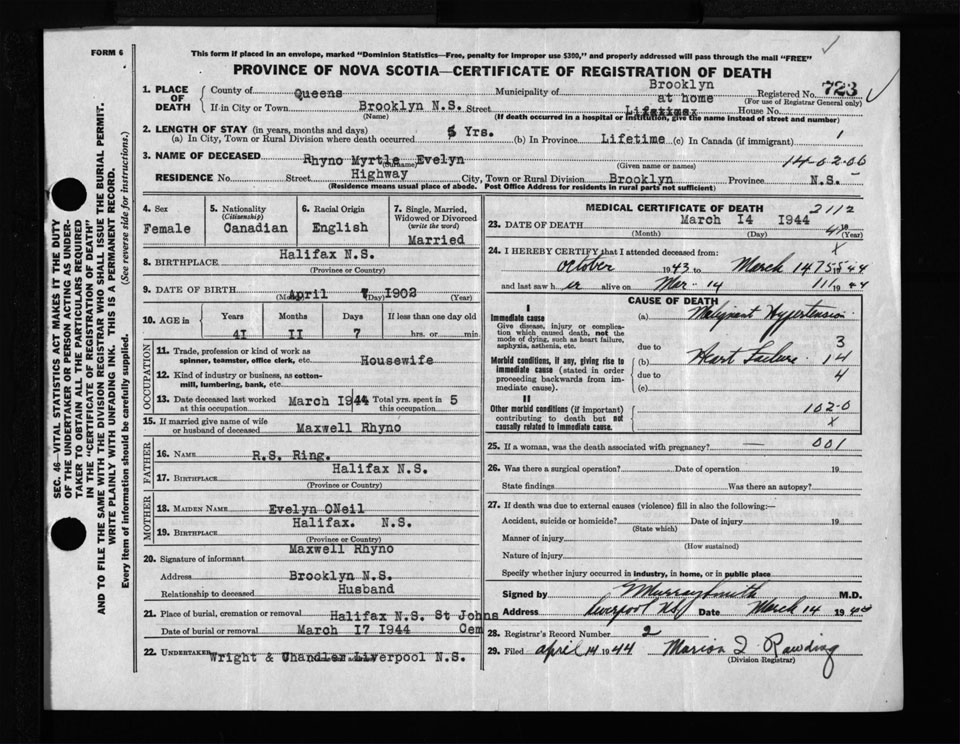 FORM 6
This form if placed in an envelope, marked "Dominion Statistics—Free, penalty for improper use $300," and properly addressed will pass through the mail "FREE"
PROVINCE OF NOVA SCOTIA—CERTIFICATE OF REGISTRATION OF DEATH
SEC. 46—VITAL STATISTICS ACT MAKES IT THE DUTY
OF THE UNDERTAKER OR PERSON ACTING AS UNDER-
TAKER TO OBTAIN ALL THE PARTICULARS REQUIRED
IN THE "CERTIFICATE OF REGISTRATION OF DEATH"
AND TO FILE THE SAME WITH THE DIVISION REGISTRAR WHO SHALL ISSUE THE BURIAL PERMIT.
WRITE PLAINLY WITH UNFADING INK. THIS IS A PERMANENT RECORD.
Every item of information should be carefully supplied. (See reverse side for instructions.)
1. PLACE OF DEATH County of Queens Municipality of Brooklyn Registered No. 723
(For use of Registrar General only)
If in City or Town Brooklyn N.S. Street at home House No.
(Name) (If death occurred in a hospital or institution, give the name instead of street and number)
2. LENGTH OF STAY (in years, months and days)
(a) In City, Town or Rural Division where death occurred 5 Yrs. (b) In Province Lifetime (c) In Canada (if immigrant) 1
3. NAME OF DECEASED Rhyno Myrtle Evelyn 1402.06
(Surname) (Given name or names)
RESIDENCE No. Street Highway City, Town or Rural Division Brooklyn Province N.S.
(Residence means usual place of abode. Post Office Address for residents in rural parts not sufficient)
4. Sex Female
5. Nationality (Citizenship) Canadian
6. Racial Origin English
7. Single, Married, Widowed or Divorced (write the word) Married
8. BIRTHPLACE Halifax N.S.
(Province or Country)
9. DATE OF BIRTH April 7 1902
(Month) (Day) (Year)
10. AGE in Years Months Days If less than one day old
41 11 7 hrs. or min.
OCCUPATION
11. Trade, profession or kind of work as spinner, teamster, office clerk, etc. Housewife
12. Kind of industry or business, as cotton-mill, lumbering, bank, etc.
13. Date deceased last worked at this occupation March 1944 Total yrs. spent in this occupation 5
15. If married give name of wife or husband of deceased Maxwell Rhyno
FATHER
16. NAME R.S. Ring.
17. BIRTHPLACE Halifax N.S.
(Province or Country)
MOTHER
18. MAIDEN NAME Evelyn ONeil
19. BIRTHPLACE Halifax. N.S.
(Province or Country)
20. Signature of informant Maxwell Rhyno
Address Brooklyn N.S.
Relationship to deceased Husband
21. Place of burial, cremation or removal Halifax N.S. St Johns Cem
Date of burial or removal March 17 1944
22. UNDERTAKER Wright & Chandler Liverpool N.S.
MEDICAL CERTIFICATE OF DEATH
2112
23. DATE OF DEATH March 14 1944
(Month) (Day) (Year)
24. I HEREBY CERTIFY that I attended deceased from: X
October 1943 to March 14 1944
and last saw her alive on Mar. 14 1944
CAUSE OF DEATH
I
Immediate cause (a) Malignant Hypertension
Give disease, injury or complication which caused death, not the mode of dying, such as heart failure, asphyxia, asthenia, etc.
due to 3
Morbid conditions, if any, giving rise to immediate cause (stated in order proceeding backwards from immediate cause).
(b) Heart Failure. 14
due to 4
(c)
II
Other morbid conditions (if important) contributing to death but not causally related to immediate cause.
102-0
X
25. If a woman, was the death associated with pregnancy? — 001
26. Was there a surgical operation? Date of operation 19
State findings Was there an autopsy?
27. If death was due to external causes (violence) fill in also the following:—
Accident, suicide or homicide? Date of injury 19
(State which)
Manner of injury
(How sustained)
Nature of injury
Specify whether injury occurred in industry, in home, or in public place
Signed by Murray Smith M.D.
Address Liverpool N.S. Date March 14 1944
28. Registrar's Record Number 2
29. Filed April 14 1944 Marion I. Rawding
(Division Registrar)